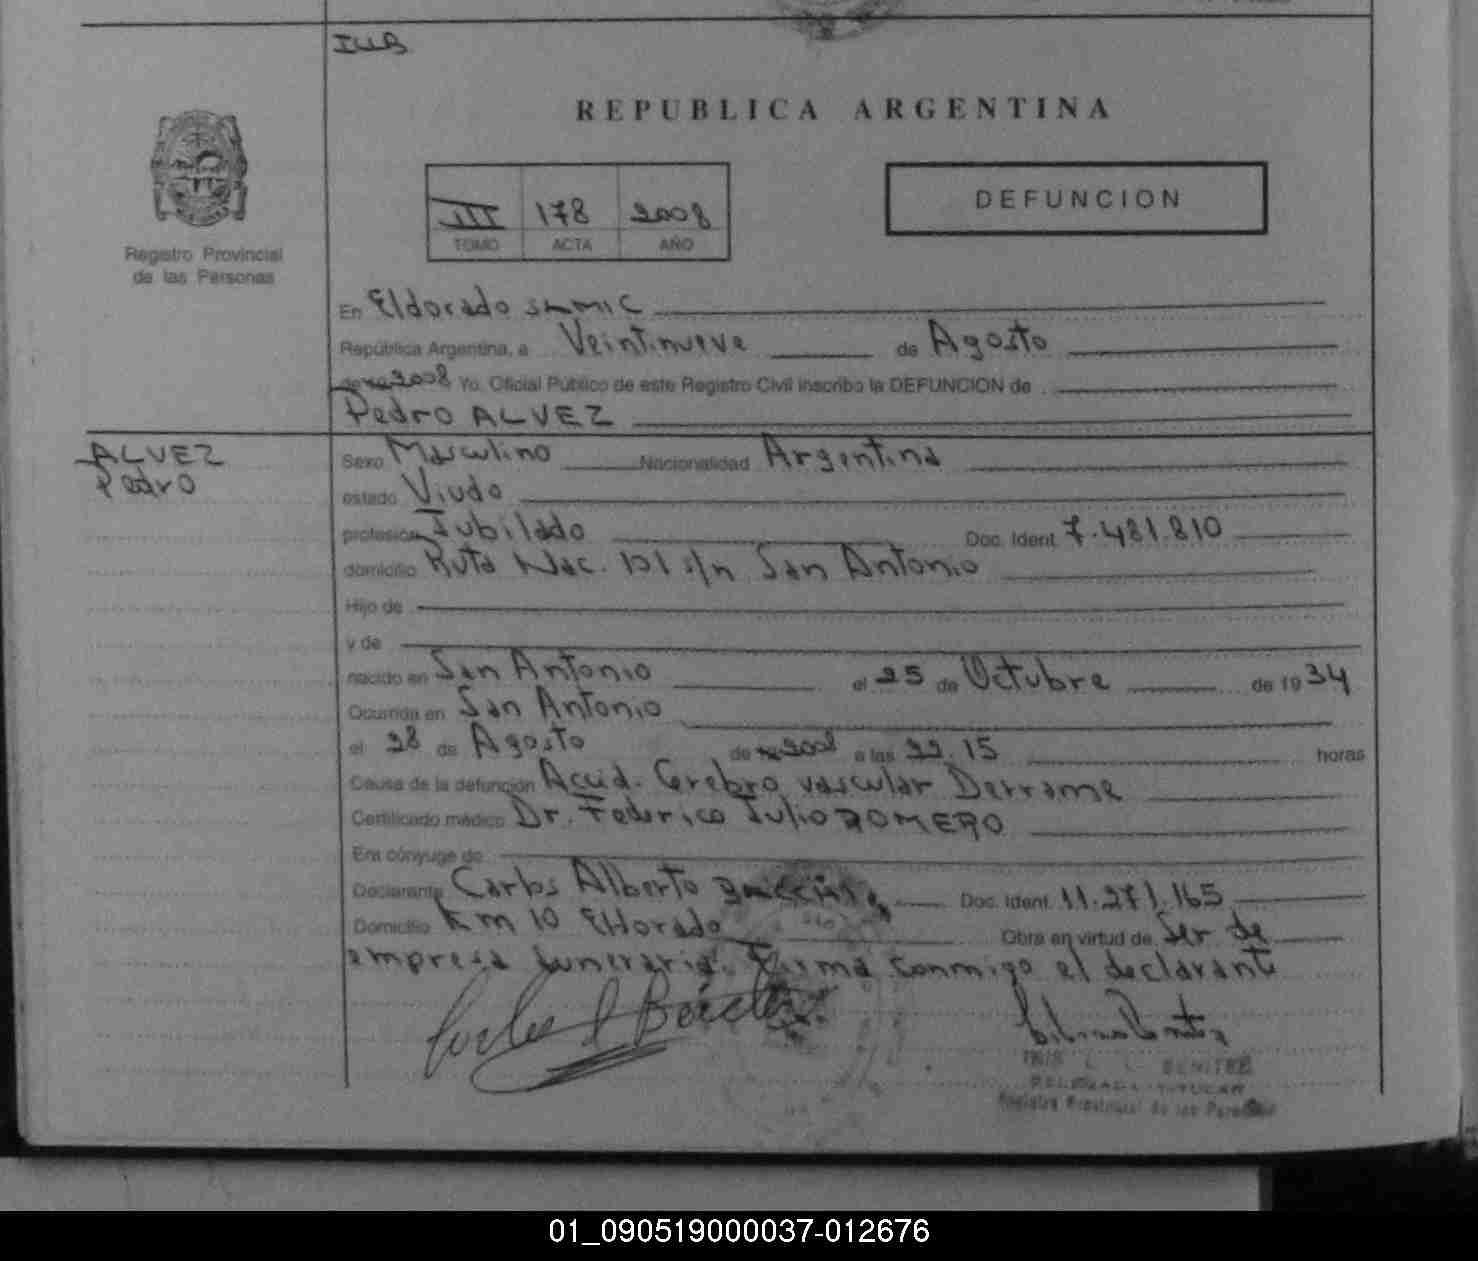 IUB
REPUBLICA ARGENTINA
III 178 2008
TOMO ACTA AÑO
DEFUNCION
Registro Provincial
de las Personas
En Eldorado
República Argentina, a Veintinueve de Agosto
2008 Yo, Oficial Público de este Registro Civil inscribo la DEFUNCION de
Pedro ALVEZ
ALVEZ
Pedro
Sexo Masculino Nacionalidad Argentina
estado Viudo
profesión Jubilado Doc. Ident. 7.481.810
domicilio Ruta Nac. 101 s/n San Antonio
Hijo de
y de
nacido en San Antonio el 25 de Octubre de 1934
Ocurrida en San Antonio
el 28 de Agosto de 2008 a las 22.15 horas
Causa de la defunción Accid. Cerebro vascular Derrame
Certificado médico Dr. Federico Julio ROMERO
Era cónyuge de
Declarante Carlos Alberto Doc. Ident. 11.271.165
Domicilio Km 10 Eldorado Obra en virtud de Ser de
empresa funeraria. Firma conmigo el declarante
BENITEZ
DELEGADA TITULAR
Registro Provincial de las Personas
01_090519000037-012676